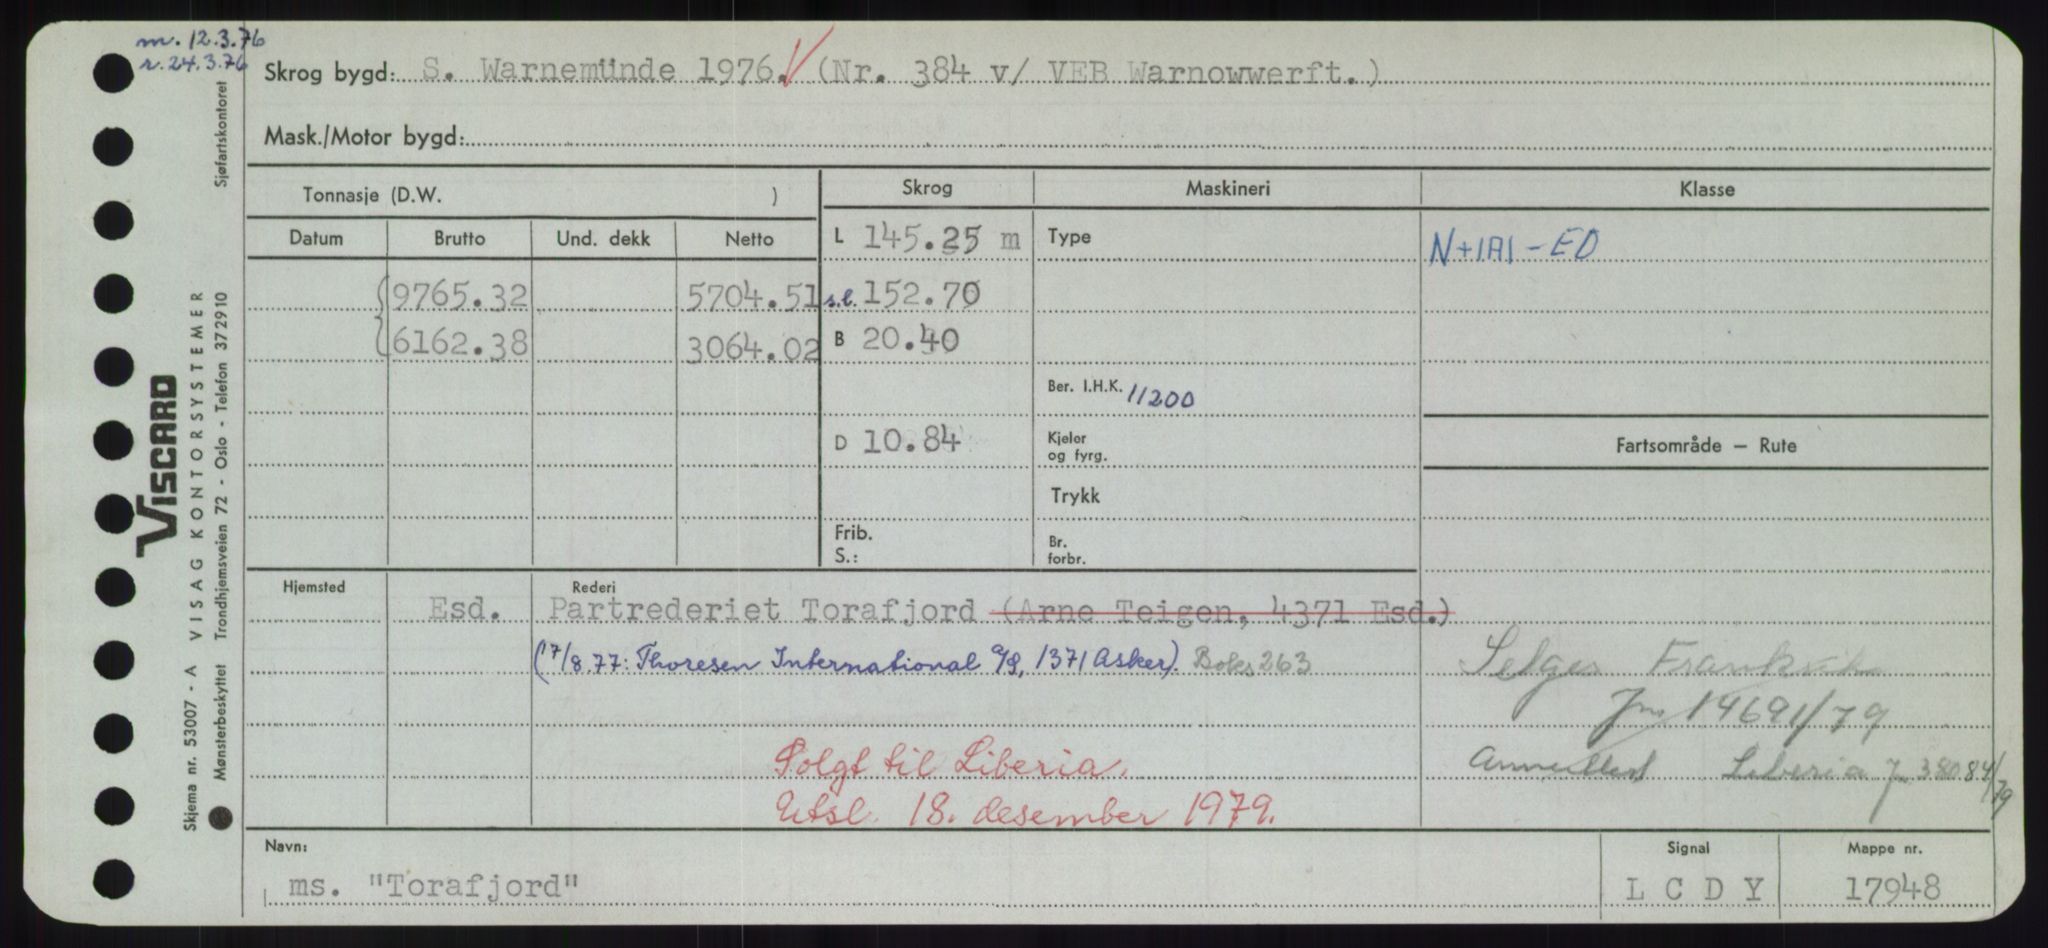 m. 12.3.76
r. 24.3.76
Skrog bygd: S. Warnemünde 1976. (Nr. 384 v/ VEB Warnowwerft.)
Mask./Motor bygd:
Tonnasje (D.W. )
Skrog
Maskineri
Klasse
Datum
Brutto
Und. dekk
Netto
L 145.25 m
Type
N+1A1-ED
9765.32
5704.51
s.l. 152.70
6162.38
3064.02
B 20.40
Ber. I.H.K. 11200
D 10.84
Kjeler
og fyrg.
Fartsområde – Rute
Trykk
Frib.
S.:
Br.
forbr.
Hjemsted
Rederi
Esd.
Partrederiet Torafjord (Arne Teigen, 4371 Esd.)
(17/8.77: Thoresen International A/S, 1371 Asker). Boks 263
Selges
Jnr 14691/79
Solgt til Liberia.
Anmeldt Liberia Jnr 38084/79
Utsl. 18. desember 1979.
Navn:
ms. "Torafjord"
Signal
L C D Y
Mappe nr.
17948
VISCARD
Skjema nr. 53007 - A VISAG KONTORSYSTEMER
Mønsterbeskyttet Trondhjemsveien 72 - Oslo - Telefon 372910
Sjøfartskontoret